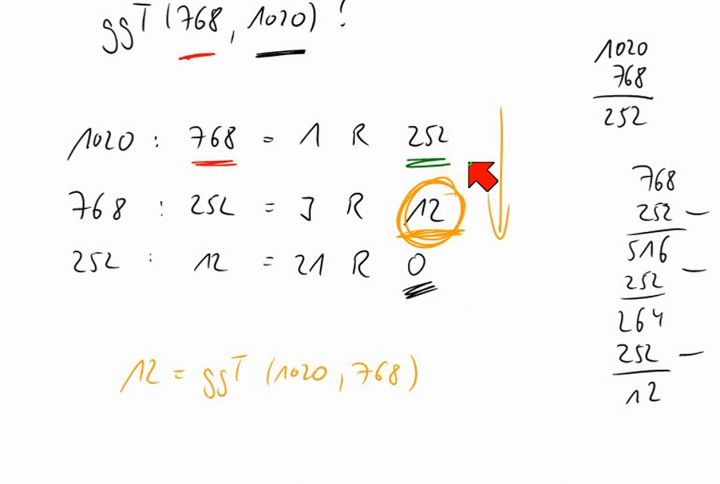 ggT (768, 1020) ?
1020 : 768 = 1 R 252
768 : 252 = 3 R 12
252 : 12 = 21 R 0
12 = ggT (1020, 768)
1020
768
252
768
252 –
516
252 –
264
252 –
12